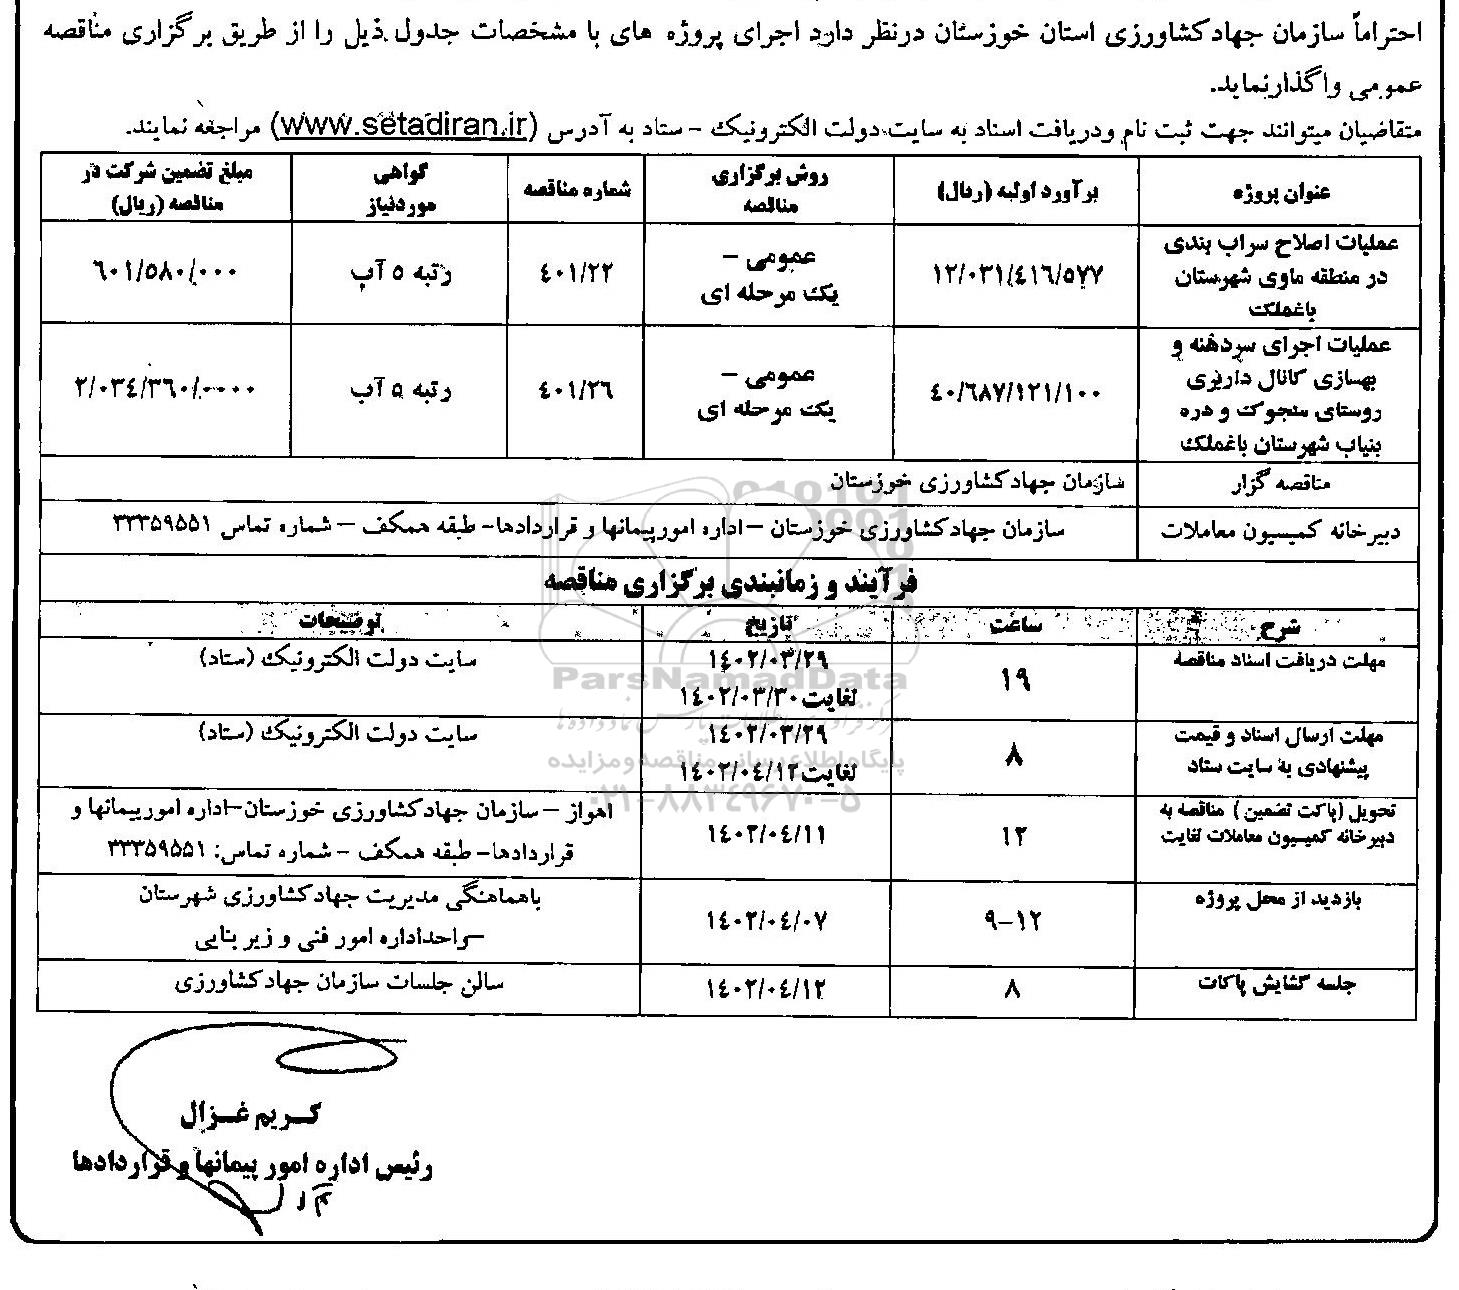 احتراماً سازمان جهادکشاورزی استان خوزستان درنظر دارد اجرای پروژه های با مشخصات جدول ذیل را از طریق برگزاری مناقصه
عمومی واگذارنماید.
متقاضیان میتوانند جهت ثبت نام ودریافت اسناد به سایت دولت الکترونیک - ستاد به آدرس (www.setadiran.ir) مراجعه نمایند.
عنوان پروژه
برآورد اولیه (ریال)
روش برگزاری
مناقصه
شماره مناقصه
گواهی
موردنیاز
مبلغ تضمین شرکت در
مناقصه (ریال)
عملیات اصلاح سراب بندی
در منطقه ماوی شهرستان
باغملک
۱۲/۰۳۱/۴۱۶/۵۷۷
عمومی –
یک مرحله ای
۴۰۱/۲۲
رتبه ۵ آب
۶۰۱/۵۸۰/۰۰۰
عملیات اجرای سردهنه و
بهسازی کانال داربری
روستای منجوک و دره
بنیاب شهرستان باغملک
۴۰/۶۸۷/۱۲۱/۱۰۰
عمومی –
یک مرحله ای
۴۰۱/۲۶
رتبه ۵ آب
۲/۰۳۴/۳۶۰/۰۰۰۰
مناقصه گزار
سازمان جهادکشاورزی خوزستان
دبیرخانه کمیسیون معاملات
سازمان جهادکشاورزی خوزستان –اداره امورپیمانها و قراردادها- طبقه همکف – شماره تماس ۳۳۳۵۹۵۵۱
فرآیند و زمانبندی برگزاری مناقصه
شرح
ساعت
تاریخ
توضیحات
مهلت دریافت اسناد مناقصه
۱۹
۱۴۰۲/۰۳/۲۹
لغایت۱۴۰۲/۰۳/۳۰
سایت دولت الکترونیک (ستاد)
مهلت ارسال اسناد و قیمت
پیشنهادی به سایت ستاد
۸
۱۴۰۲/۰۳/۲۹
لغایت۱۴۰۲/۰۴/۱۲
سایت دولت الکترونیک (ستاد)
تحویل (پاکت تضمین ) مناقصه به
دبیرخانه کمیسیون معاملات لغایت
۱۲
۱۴۰۲/۰۴/۱۱
اهواز –سازمان جهادکشاورزی خوزستان–اداره امورپیمانها و
قراردادها- طبقه همکف - شماره تماس: ۳۳۳۵۹۵۵۱
بازدید از محل پروژه
۹-۱۲
۱۴۰۲/۰۴/۰۷
باهماهنگی مدیریت جهادکشاورزی شهرستان
–واحداداره امور فنی و زیر بنایی
جلسه گشایش پاکات
۸
۱۴۰۲/۰۴/۱۲
سالن جلسات سازمان جهادکشاورزی
ParsNamadData
پایگاه اطلاع رسانی مناقصه و مزایده
۰۲۱-۸۸۳۴۹۶۷۰-۵
کریم غزال
رئیس اداره امور پیمانها و قراردادها